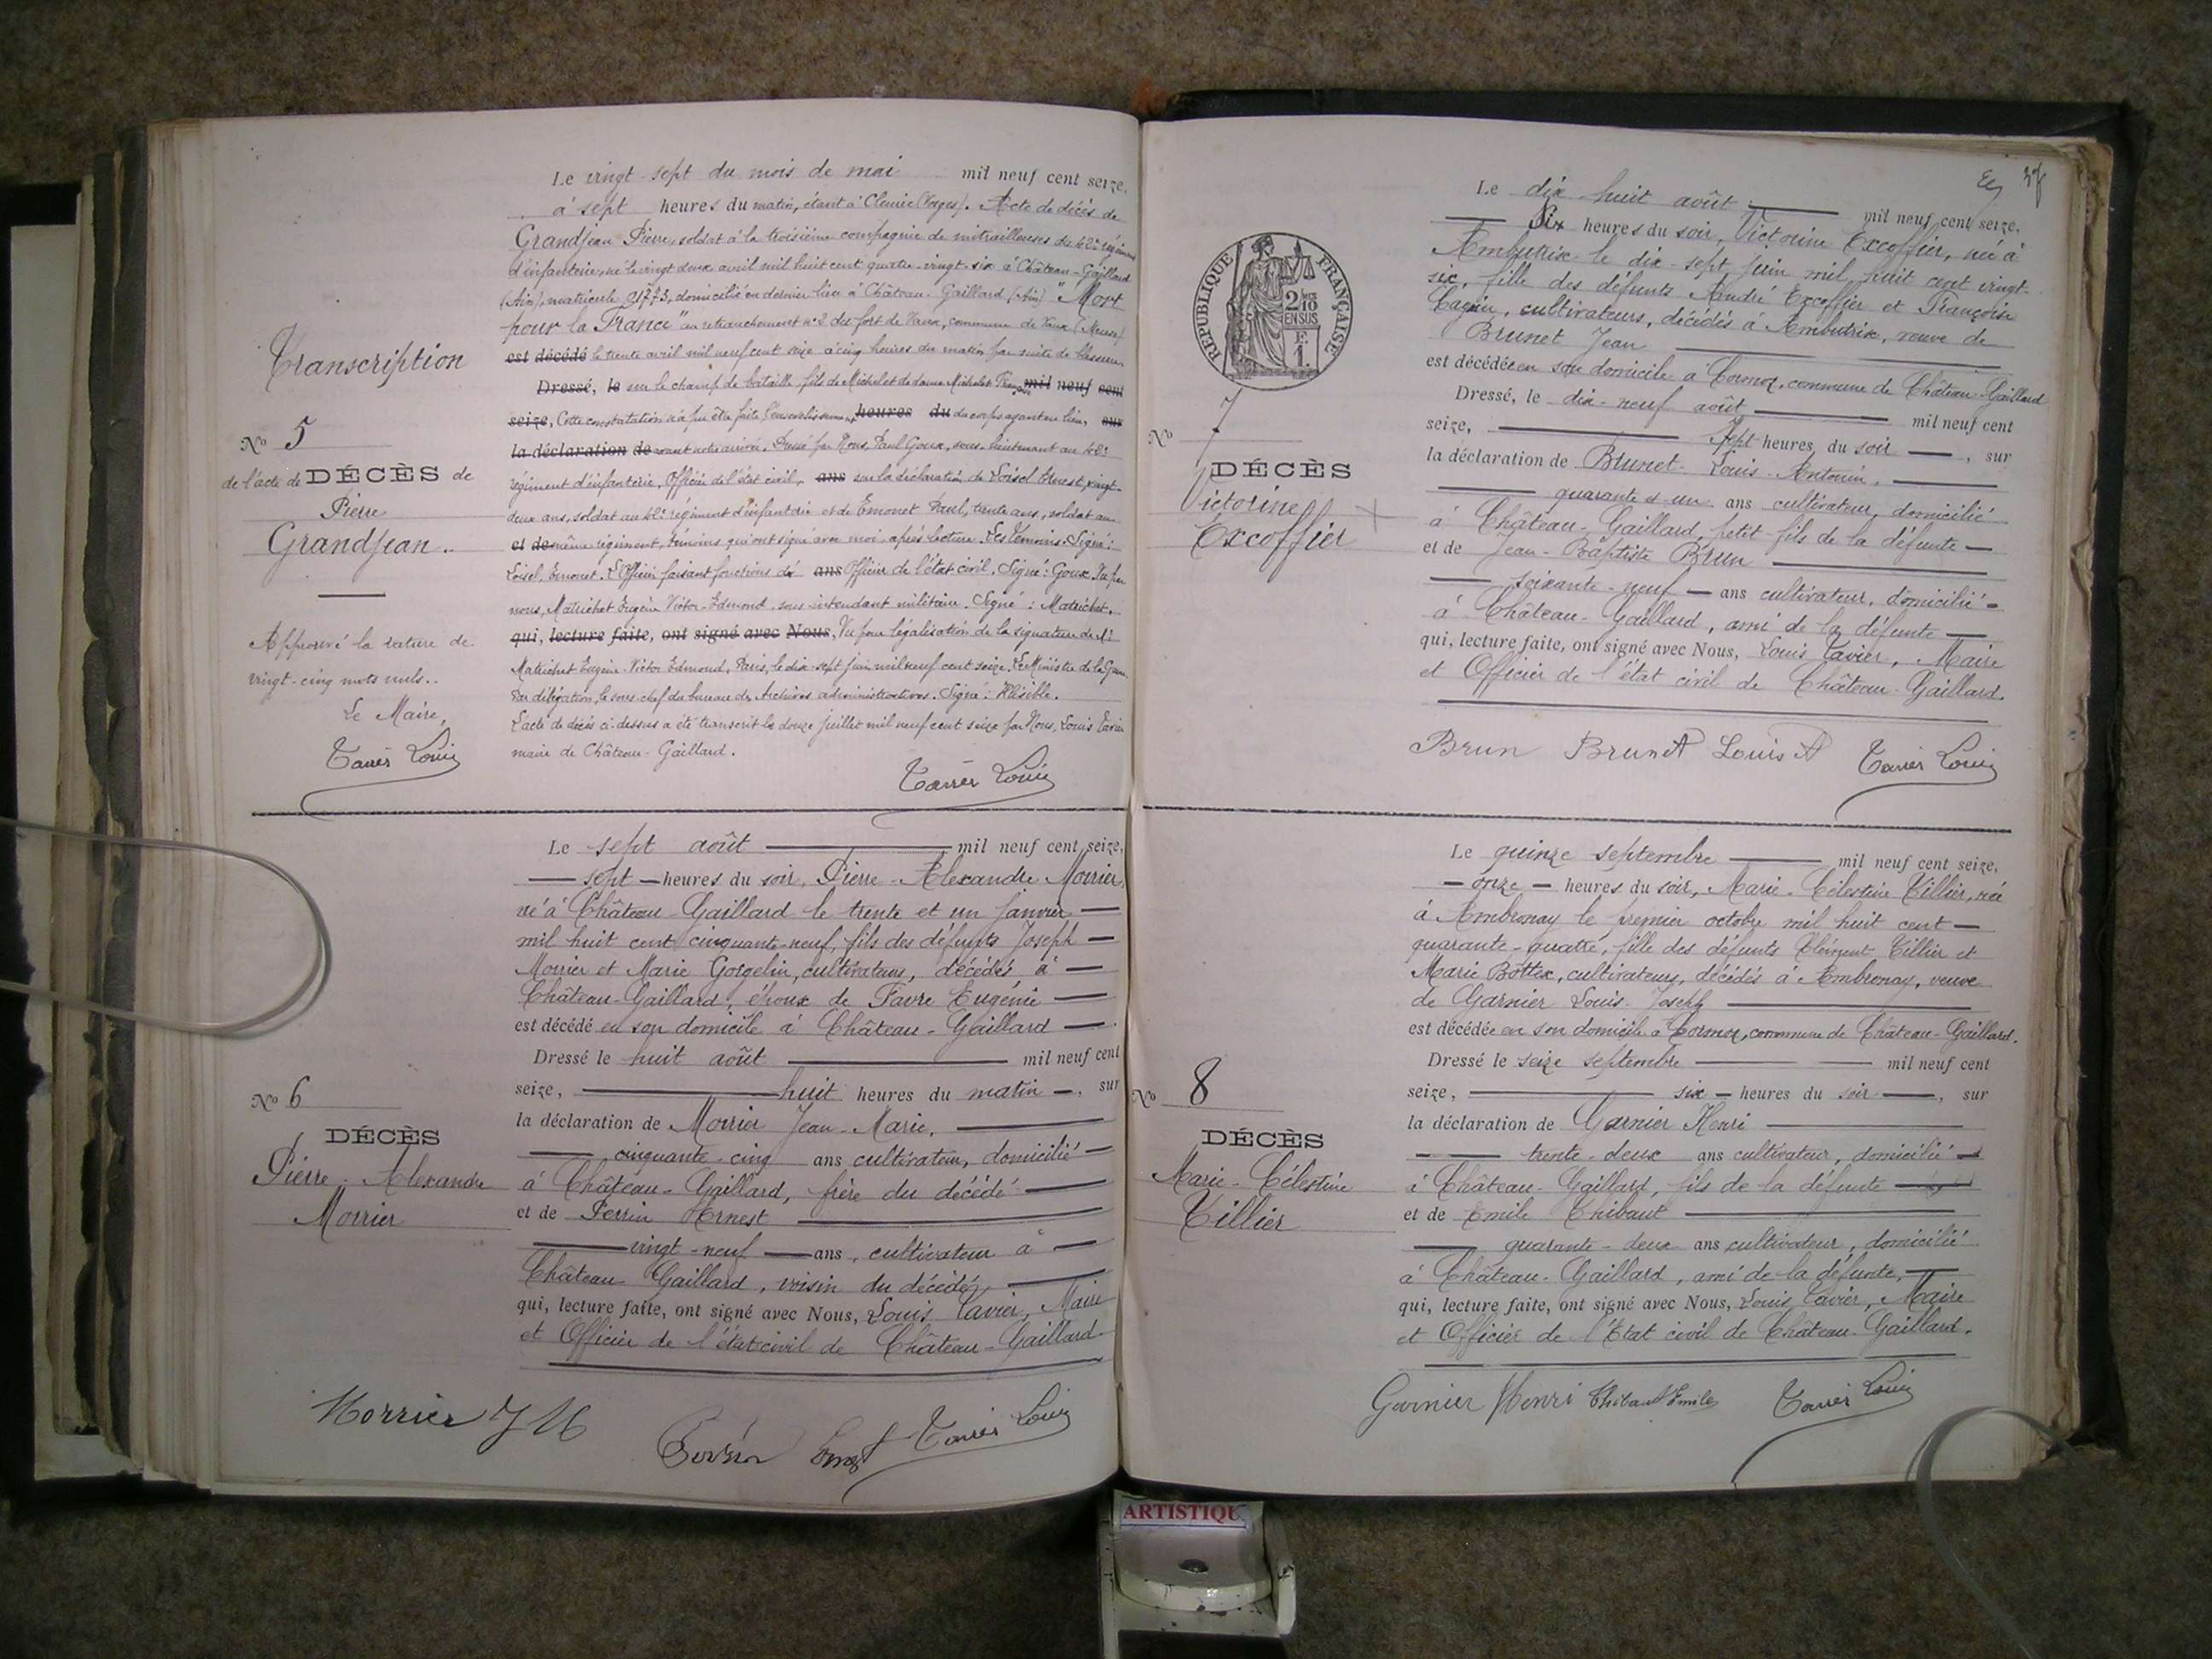 Le vingt-sept du mois de mai mil neuf cent seize,
à sept heures du matin, étant à Cleurie (Vosges). Acte de décès de
Grandjean Pierre, soldat à la troisième compagnie de mitrailleuses du 42e régiment
d'infanterie, né le vingt deux avril mil huit cent quatre-vingt-six à Château-Gaillard
(Ain), matricule 21773, domicilié en dernier lieu à Château-Gaillard (Ain) "Mort
pour la France" au retranchement n°2 du fort de Vaux, commune de Vaux (Meuse)
est décédé le trente avril mil neuf cent seize à cinq heures du matin par suite de blessures
Dressé, le sur le champ de bataille fils de Michel et de dame Michelet mil neuf cent
seize, Cette constatation n'a pu être faite, l'ensevelissement heures du du corps ayant eu lieu, sur
la déclaration de avant notre arrivée. Dressé par Nous, Paul Goux, sous-lieutenant au 42e
régiment d'infanterie, Officier de l'état civil, ans sur la déclaration de Loisel Ernest, vingt-
deux ans, soldat au 42e régiment d'infanterie et de Emonet Paul, trente ans, soldat au
et de même régiment, témoins qui ont signé avec moi après lecture. Les Témoins. Signé:
Loisel, Emonet. L'Officier faisant fonctions de ans Officier de l'état civil. Signé: Goux. Vu par
nous, Matrichet Eugène Victor-Edmond, sous-intendant militaire. Signé: Matrichet.
qui, lecture faite, ont signé avec Nous, Vu pour légalisation de la signature de Mr
Matrichet Eugène-Victor Edmond, Paris, le dix-sept juin mil neuf cent seize, Le Ministre de la Guerre
Par délégation, le sous-chef du bureau des Archives administratives. Signé: Illisible.
L'acte de décès ci-dessus a été transcrit le douze juillet mil neuf cent seize par Nous, Louis Tavier
maire de Château-Gaillard.
Tavier Louis
Transcription
No 5
de l'acte de DÉCÈS de
Pierre
Grandjean.
Approuvé la rature de
vingt-cinq mots nuls..
Le Maire,
Tavier Louis
Le sept août mil neuf cent seize,
sept heures du soir, Pierre-Alexandre Morrier,
né à Château-Gaillard le trente et un janvier
mil huit cent cinquante-neuf, fils des défunts Joseph
Morrier et Marie Gorgelin, cultivateurs, décédés à
Château-Gaillard, époux de Favre Eugénie
est décédé en son domicile à Château-Gaillard
Dressé le huit août mil neuf cent
seize, huit heures du matin, sur
la déclaration de Morrier Jean-Marie,
cinquante-cinq ans cultivateur, domicilié
à Château-Gaillard, frère du décédé
et de Perrin Ernest
vingt-neuf ans, cultivateur à
Château-Gaillard, voisin du décédé,
qui, lecture faite, ont signé avec Nous, Louis Tavier, Maire
et Officier de l'état civil de Château-Gaillard
No 6
DÉCÈS
Pierre-Alexandre
Morrier
Morrier J M
Perrin Ernest
Tavier Louis
37
Le dix-huit août mil neuf cent seize,
Six heures du soir, Victorine Excoffier, née à
Ambutrix le dix-sept juin mil huit cent vingt-
six, fille des défunts André Excoffier et Françoise
Cagnin, cultivateurs, décédés à Ambutrix, veuve de
Brunet Jean
est décédée en son domicile à Cormoz, commune de Château-Gaillard
Dressé, le dix-neuf août mil neuf cent
seize, Sept heures du soir, sur
la déclaration de Brunet Louis-Antonin,
quarante et un ans cultivateur, domicilié
à Château-Gaillard, petit-fils de la défunte
et de Jean-Baptiste Brun
soixante-neuf ans cultivateur, domicilié
à Château-Gaillard, ami de la défunte
qui, lecture faite, ont signé avec Nous, Louis Tavier, Maire
et Officier de l'état civil de Château-Gaillard.
RÉPUBLIQUE FRANÇAISE
2/10
EN SUS
F.
1.
No 7
DÉCÈS
Victorine
Excoffier
Brun Brunet Louis A Tavier Louis
Le quinze septembre mil neuf cent seize,
onze heures du soir, Marie-Célestine Tillier, née
à Ambronay le premier octobre mil huit cent
quarante-quatre, fille des défunts Clément Tillier et
Marie Bottex, cultivateurs, décédés à Ambronay, veuve
de Garnier Louis-Joseph
est décédée en son domicile à Cormoz, commune de Château-Gaillard.
Dressé le seize septembre mil neuf cent
seize, six heures du soir, sur
la déclaration de Garnier Henri
trente-deux ans cultivateur, domicilié
à Château-Gaillard, fils de la défunte
et de Emile Thibaut
quarante-deux ans cultivateur, domicilié
à Château-Gaillard, ami de la défunte,
qui, lecture faite, ont signé avec Nous, Louis Tavier, Maire
et Officier de l'Etat civil de Château-Gaillard.
No 8
DÉCÈS
Marie-Célestine
Tillier
Garnier Henri Thibaut Emile Tavier Louis
ARTISTIQU